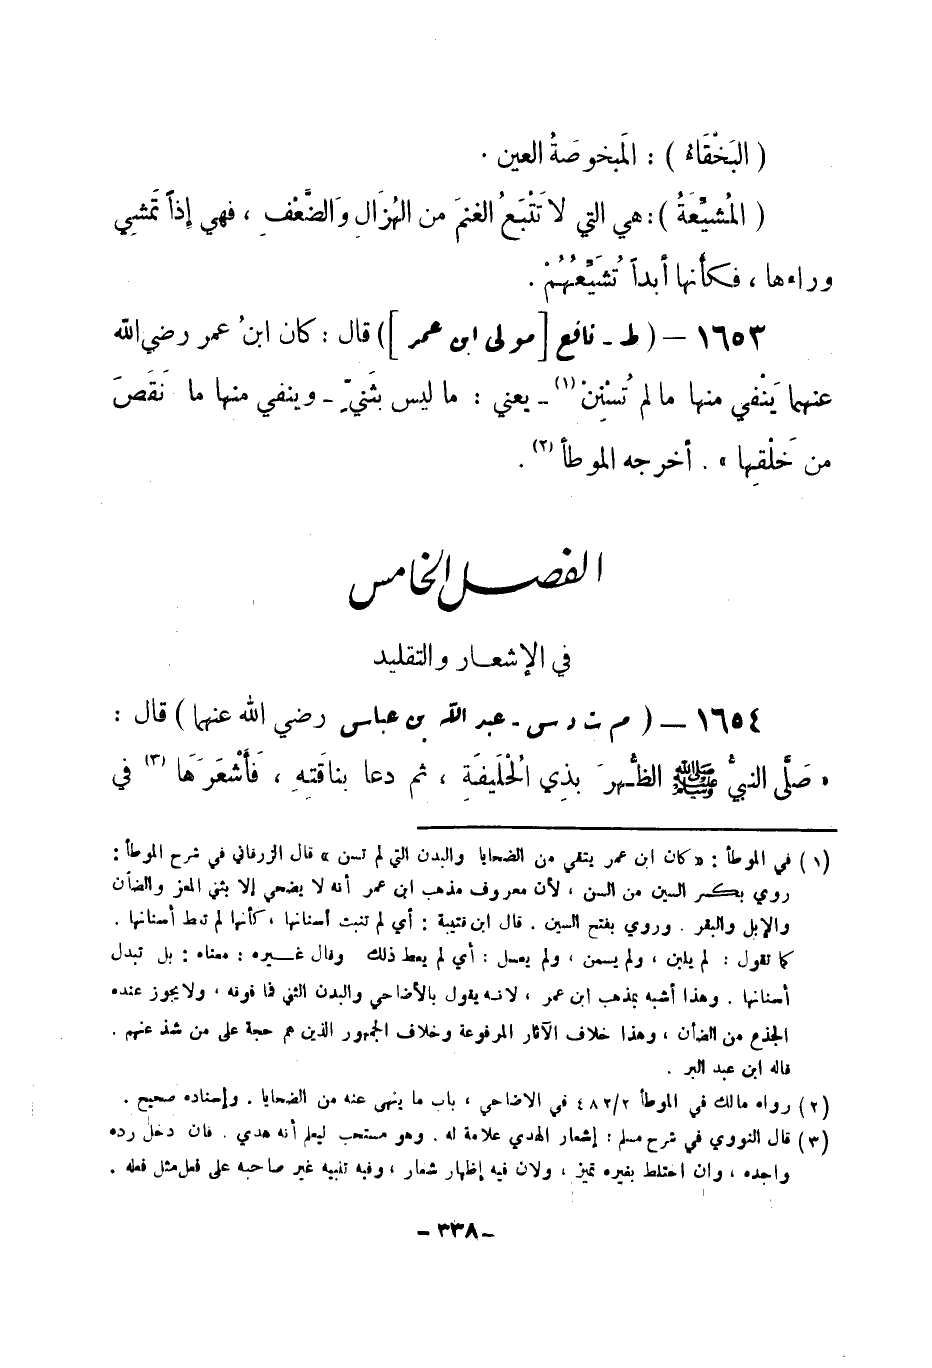 ( البَخْقَاءُ ) : المَبخوصَةُ العين .
( المُشَيِّعَةُ ) : هي التي لا تَتْبَعُ الغنمَ من الهُزَال والضَّعْفِ ، فهي إذاً تَمْشِي
وراءها ، فكأنها أبداً تُشَيِّعُهُمْ .
١٦٥٣ – ( ط - نافع [ مولى ابن عمر ] ) قال : كان ابنُ عمر رضي الله
عنهما يَنْفي منها ما لم تُسْنِنْ (١) - يعني : ما ليس بثَنيٍّ - وينفي منها ما نَقَصَ
من خَلْقِها » . أخرجه الموطأ (٢) .
الفصل الخامس
في الإشعار والتقليد
١٦٥٤ – ( م ت د س - عبد الله بن عباس رضي الله عنهما ) قال :
« صَلَّى النبيُّ ﷺ الظُّهرَ بذِي الحُلَيفَةِ ، ثم دعا بناقتِهِ ، فَأَشْعَرَهَا (٣) في
(١) في الموطأ : « كان ابن عمر يتقي من الضحايا والبدن التي لم تسن » قال الزرقاني في شرح الموطأ :
روي بكسر السين من السن ، لأن معروف مذهب ابن عمر أنه لا يضحي إلا بثني المعز والضأن
والإبل والبقر . وروي بفتح السين . قال ابن قتيبة : أي لم تنبت أسنانها ، كأنها لم تعط أسنانها .
كما تقول : لم يلبن ، ولم يسمن ، ولم يعسل : أي لم يعط ذلك وقال غيره : معناه : بل تبدل
أسنانها . وهذا أشبه بمذهب ابن عمر ، لانه يقول بالأضاحي والبدن الثني فما فوقه ، ولا يجوز عنده
الجذع من الضأن ، وهذا خلاف الآثار المرفوعة وخلاف الجمهور الذين هم حجة على من شذ عنهم .
قاله ابن عبد البر .
(٢) رواه مالك في الموطأ ٤٨٢/٢ في الاضاحي ، باب ما ينهى عنه من الضحايا . وإسناده صحيح .
(٣) قال النووي في شرح مسلم : إشعار الهدي علامة له . وهو مستحب ليعلم أنه هدي . فان دخل رده
واجده ، وان اختلط بغيره تميز ، ولان فيه إظهار شعار ، وفيه تنبيه غير صاحبه على فعل مثل فعله .
– ٣٣٨ –